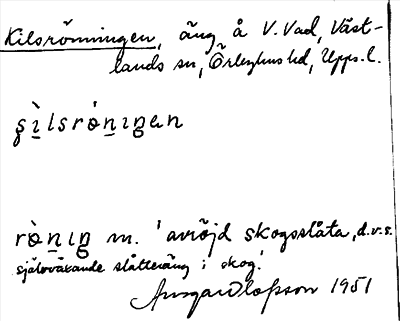 Kilsrönningen, äng å V. Vad, Väst-
lands sn, Örbyhus hd, Upps. l.
rò̱nıŋ m. 'avröjd skogsslåta, d.v.s.
självväxande slåtteräng i skog.'
Ansgar Olofsson 1951